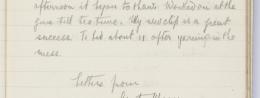 afternoon it began to thaw. Worked on at the
guns till tea time. My new clip is a great
success. To bed about 11 after yarning in the
mess.
Letters from